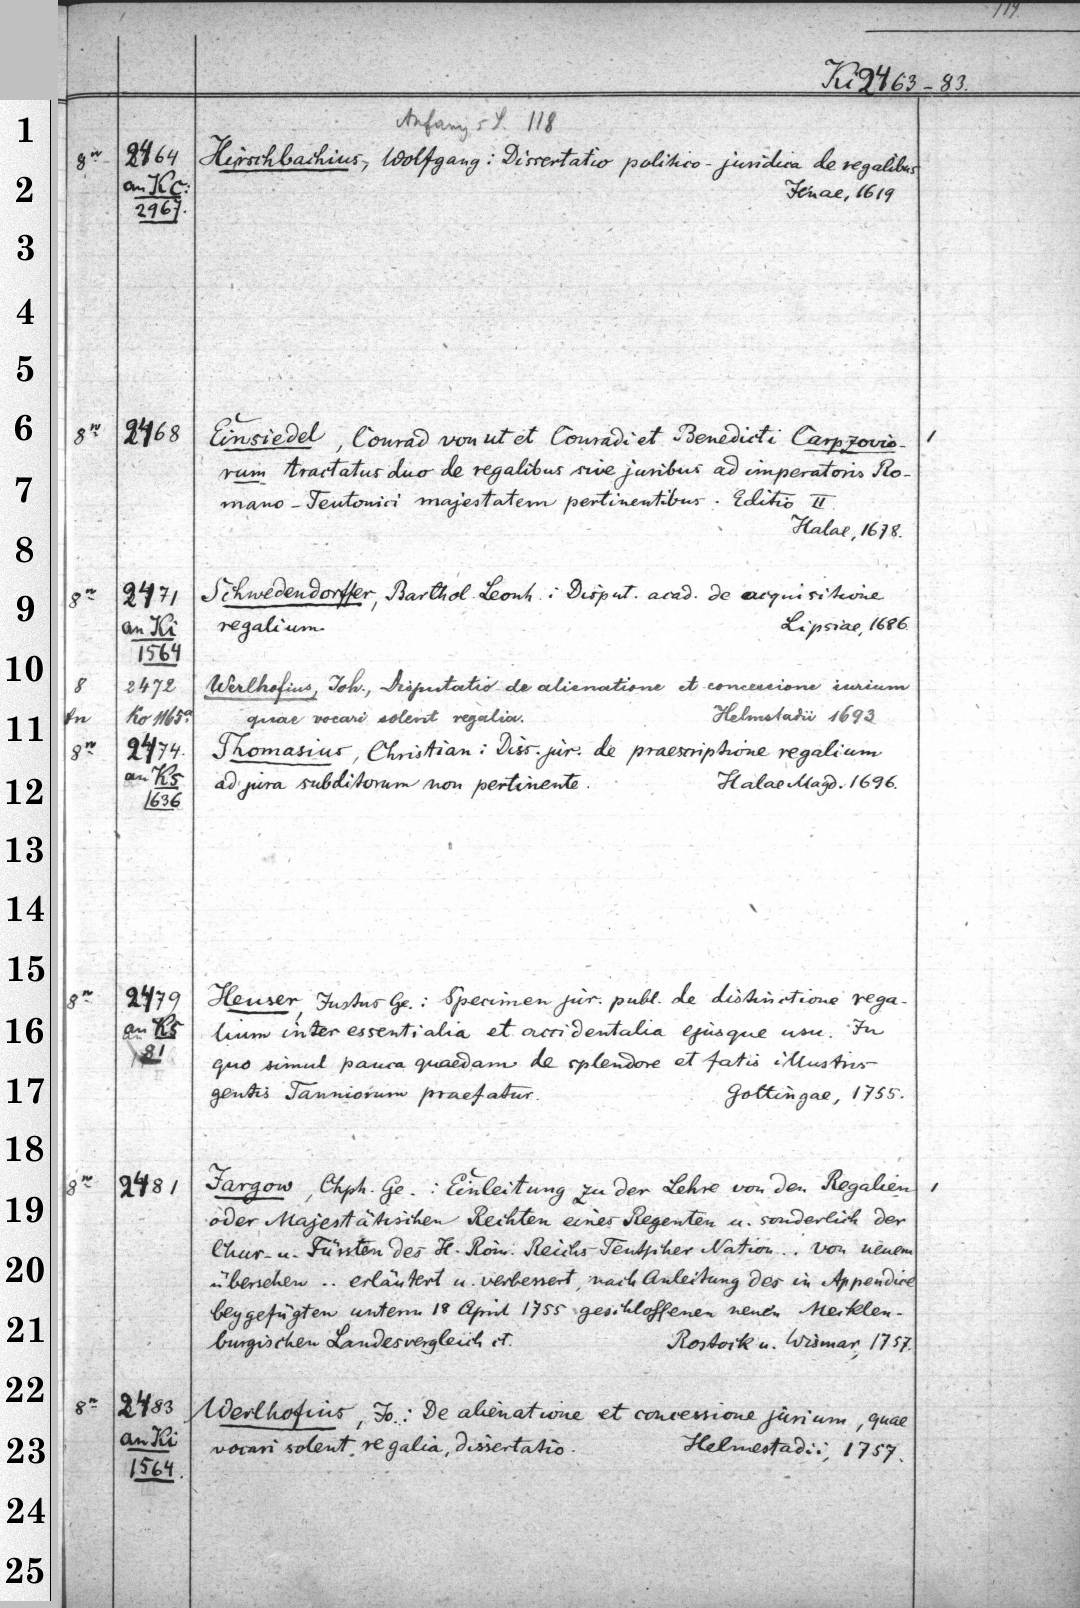 119.
Ki 2463-83.
Anfang s S. 118
1
8º 2464 Hirschbachius, Wolfgang: Dissertatio politico-juridica de regalibus
2
an Kc: Jenae, 1619
2967.
3
4
5
6
8º 2468 Einsiedel, Conrad von ut et Conradi et Benedicti Carpzovio-
rum tractatus duo de regalibus sive juribus ad imperatoris Ro-
7
mano-Teutonici majestatem pertinentibus. Editio II
Halae, 1678.
8
8º 2471 Schwedendorffer, Barthol. Leonh.: Disput. acad. de acquisitione
9
an Ki regalium Lipsiae, 1686
1564
10
8 2472 Werlhofius, Joh., Disputatio de alienatione et concessione iurium
11
an Ko 1165a quae vocari solent regalia. Helmstadii 1693
8º 2474. Thomasius, Christian: Diss. jur. de praescriptione regalium
12
an Ks ad jura subditorum non pertinente. Halae Magd. 1696.
1636
13
14
15
8º 2479 Heuser, Justus Ge.: Specimen jur. publ. de distinctione rega-
16
an Ks lium inter essentialia et accidentalia ejusque usu. In
81 quo simul pauca quaedam de splendore et fatis illustris
17
gentis Tanniorum praefatur. Gottingae, 1755.
18
8º 2481 Jargow, Chph. Ge.: Einleitung zu der Lehre von den Regalien
19
oder Majestätischen Rechten eines Regenten u. sonderlich der
Chur- u. Fürsten des H. Röm. Reichs Teutscher Nation.. von neuem
20
übersehen .. erläutert u. verbessert, nach Anleitung des in Appendice
beygefügten unterm 18 April 1755 geschlossenen neuen Mecklen-
21
burgischen Landesvergleich et. Rostock u. Wismar, 1757.
22
8º 2483 Werlhofius, Jo.: De alienatione et concessione jurium, quae
23
an Ki vocari solent, regalia, dissertatio. Helmestadii, 1757.
1564.
24
25